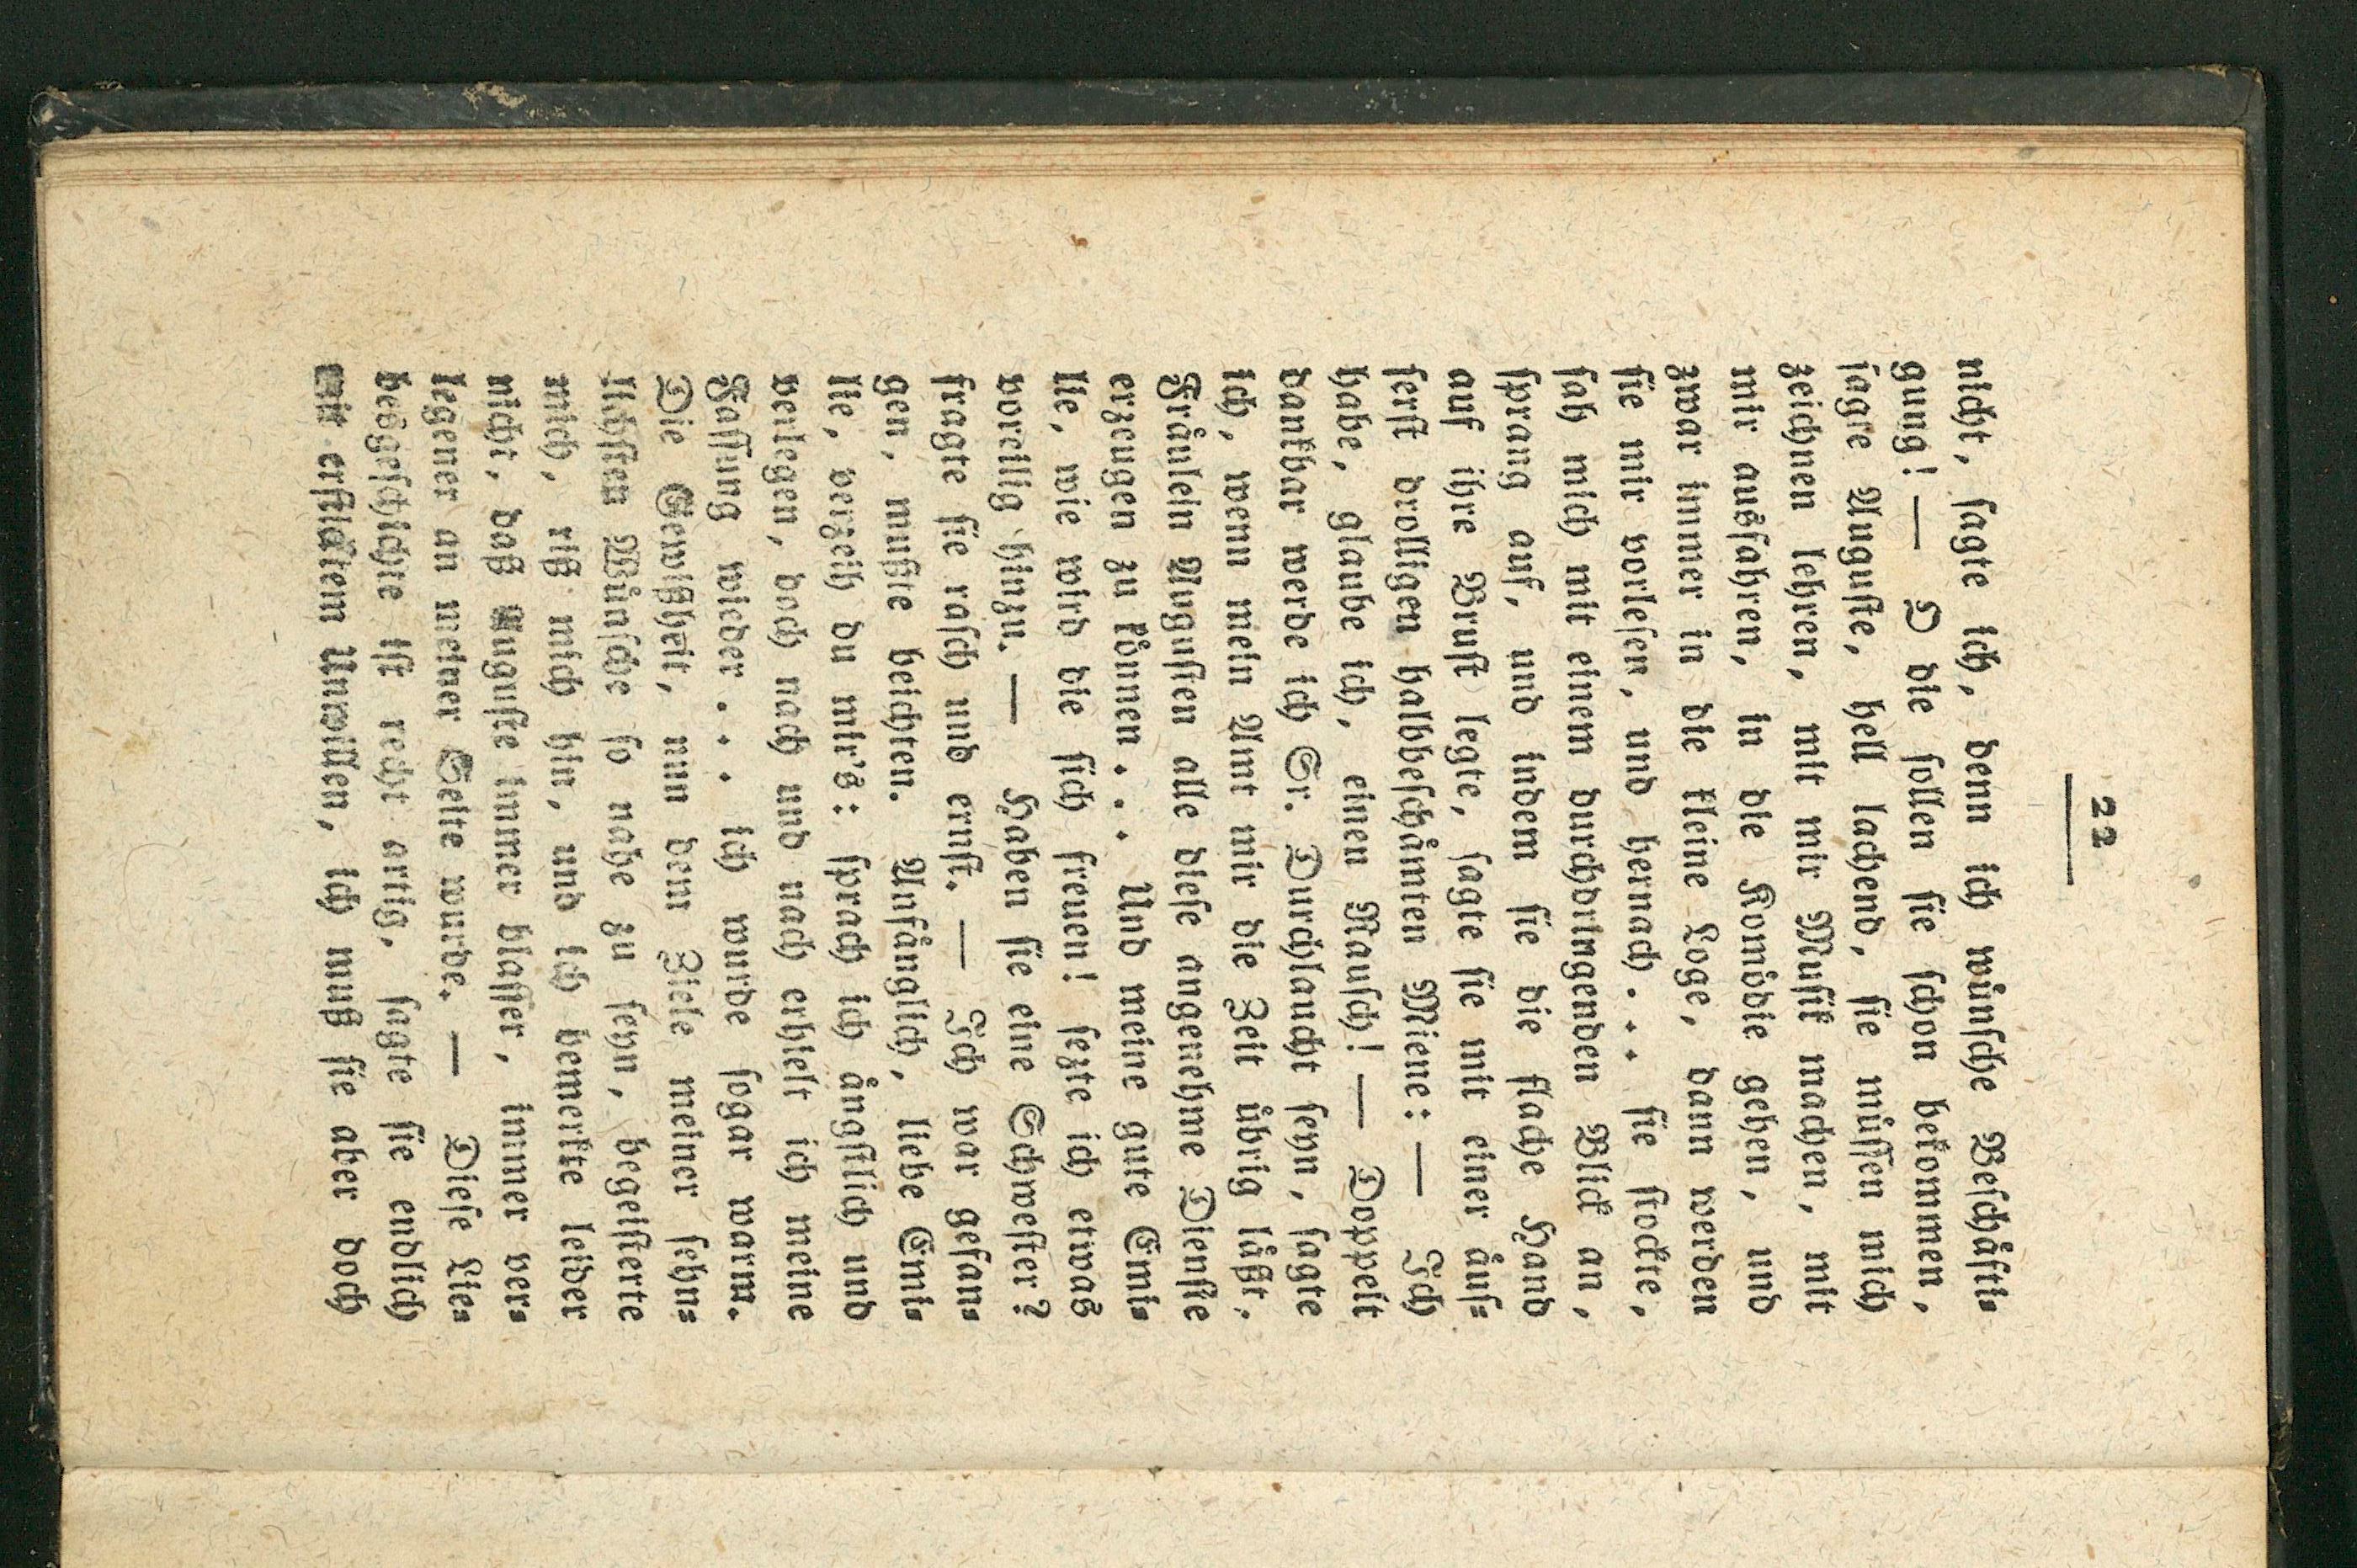 22
nicht, ſagte ich, denn ich wünſche Beſchäfti⸗
gung! — O die ſollen ſie ſchon bekommen,
ſagte Auguſte, hell lachend, ſie müſſen mich
zeichnen lehren, mit mir Muſik machen, mit
mir ausfahren, in die Komödie gehen, und
zwar immer in die kleine Loge, dann werden
ſie mir vorleſen, und hernach... ſie ſtockte,
ſah mich mit einem durchdringenden Blick an,
ſprang auf, und indem ſie die flache Hand
auf ihre Bruſt legte, ſagte ſie mit einer äuſ⸗
ſerſt drolligen halbbeſchämten Miene: — Ich
habe, glaube ich, einen Rauſch! — Doppelt
dankbar werde ich Sr. Durchlaucht ſeyn, ſagte
ich, wenn mein Amt mir die Zeit übrig läßt,
Fräulein Auguſten alle dieſe angenehme Dienſte
erzeugen zu können... Und meine gute Emi⸗
lie, wie wird die ſich freuen! ſezte ich etwas
voreilig hinzu. — Haben ſie eine Schweſter?
fragte ſie raſch und ernſt. — Ich war gefan⸗
gen, mußte beichten. Anfänglich, liebe Emi⸗
lie, verzeih du mir's: ſprach ich ängſtlich und
verlegen, doch nach und nach erhielt ich meine
Faſſung wieder... ich wurde ſogar warm.
Die Gewißheit, nun dem Ziele meiner ſehn⸗
lichſten Wünſche ſo nahe zu ſeyn, begeiſterte
mich, riß mich hin, und ich bemerkte leider
nicht, daß Auguſte immer blaſſer, immer ver⸗
legener an meiner Seite wurde. — Dieſe Lie⸗
besgeſchichte iſt recht artig, ſagte ſie endlich
mit erſticktem Unwillen, ich muß ſie aber doch